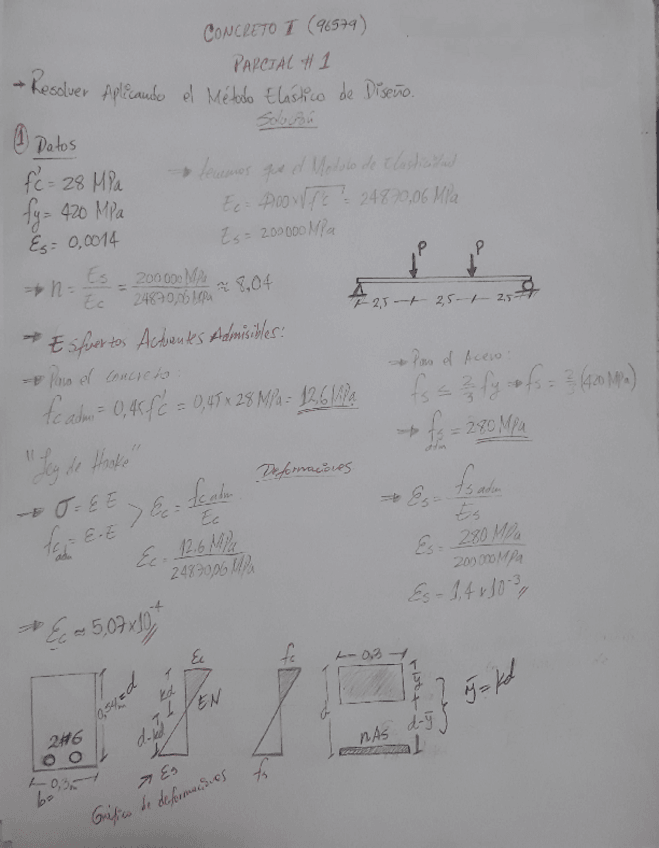 CONCRETO I (96579)
PARCIAL #1
→ Resolver Aplicando el Método Elástico de Diseño.
Solución
① Datos
f'c = 28 MPa
fy = 420 MPa
Es = 0,0014
⇒ tenemos que el Modulo de Elasticidad
Ec = 4700 x √f'c = 24870,06 MPa
Es = 200000 MPa
⇒ n = Es/Ec = 200000 MPa/24870,06 MPa ≈ 8.04
P P
2,5 2,5 2,5
→ Esfuerzos Actuantes Admisibles:
⇒ Para el concreto:
fc adm = 0,45 f'c = 0,45 x 28 MPa = 12,6 MPa
→ Para el Acero:
fs ≤ 2/3 fy ⇒ fs = 2/3 (420 MPa)
⇒ fs adm = 280 MPa
"Ley de Hooke"
Deformaciones
→ σ = ε E
fc adm = ε · E
> εc = fc adm/Ec
εc = 12,6 MPa/24870,06 MPa
⇒ εc ≈ 5,07x10⁻⁴
⇒ εs = fs adm/Es
εs = 280 MPa/200000 MPa
εs = 1,4x10⁻³
0,54m = d
2#6
0,3m
b=
εc
kd
EN
d-kd
εs
Gráfico de deformaciones
fc
fs
0,3
d
nAs
ȳ
d-ȳ
ȳ = kd